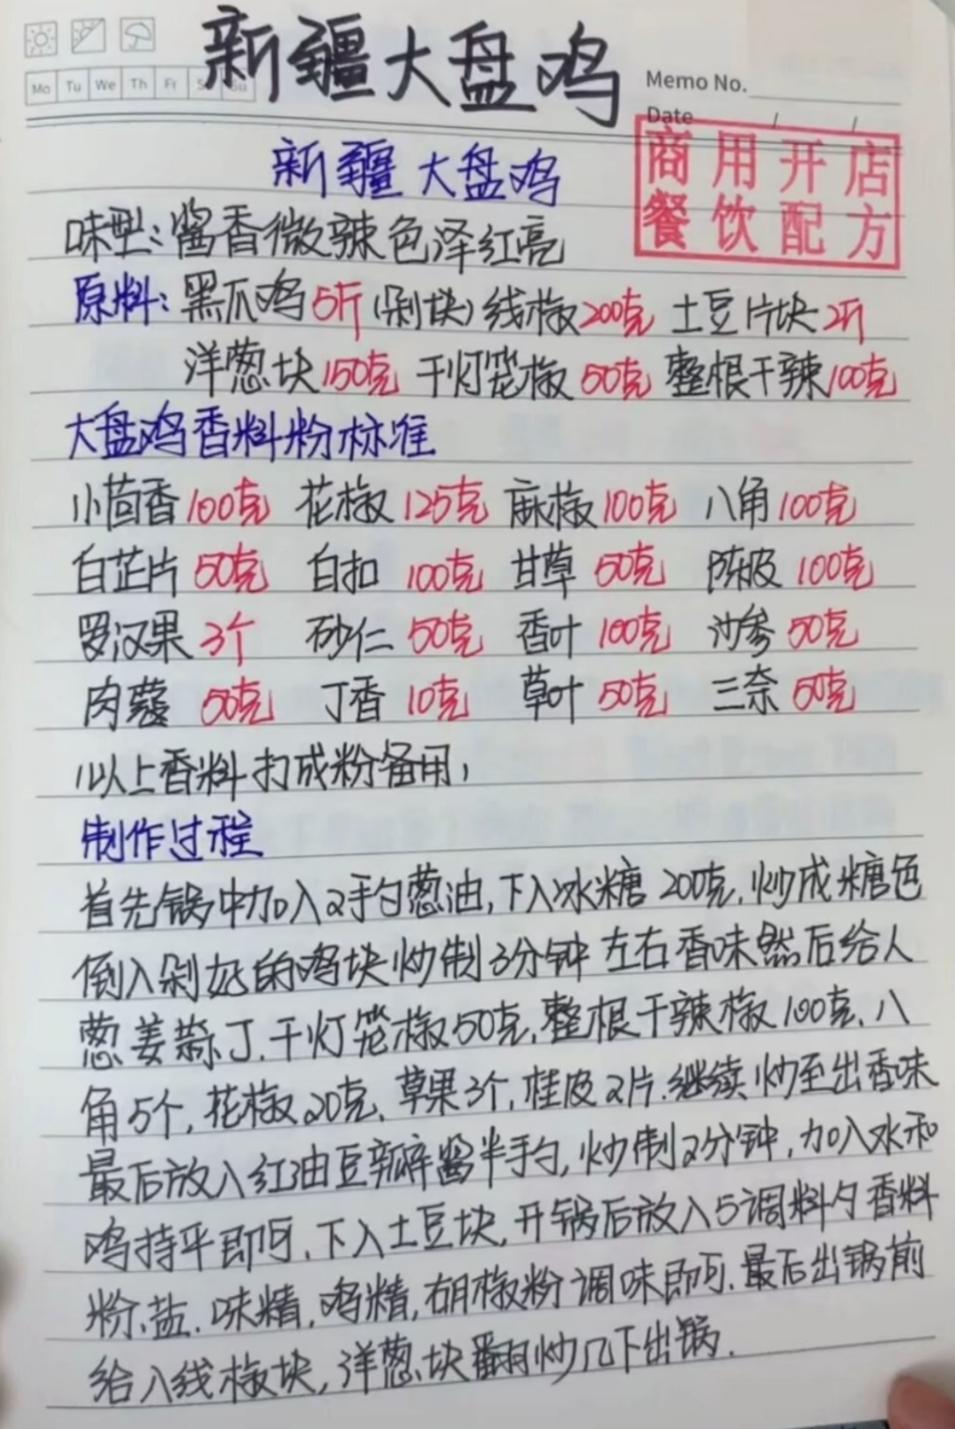 新疆大盘鸡
Mo Tu We Th Fr Sa Su
Memo No.
Date / /
商用开店
餐饮配方
新疆大盘鸡
味型:酱香微辣色泽红亮
原料:黑爪鸡5斤(剁块)线椒200克 土豆片块2斤
洋葱块150克 干灯笼椒50克 整根干辣100克
大盘鸡香料粉标准
小茴香100克 花椒125克 麻椒100克 八角100克
白芷片50克 白扣100克 甘草50克 陈皮100克
罗汉果3个 砂仁50克 香叶100克 沙参50克
肉蔻50克 丁香10克 草叶50克 三奈50克
以上香料打成粉备用,
制作过程
首先锅中加入2手勺葱油,下入冰糖200克,炒成糖色
倒入剁好的鸡块炒制3分钟左右香味然后给入
葱姜蒜丁.干灯笼椒50克,整根干辣椒100克、八
角5个,花椒20克、草果3个,桂皮2片.继续炒至出香味
最后放入红油豆瓣酱半手勺,炒制2分钟,加入水和
鸡持平即可.下入土豆块,开锅后放入5调料勺香料
粉.盐.味精,鸡精,胡椒粉调味即可.最后出锅前
给入线椒块,洋葱块翻炒几下出锅.